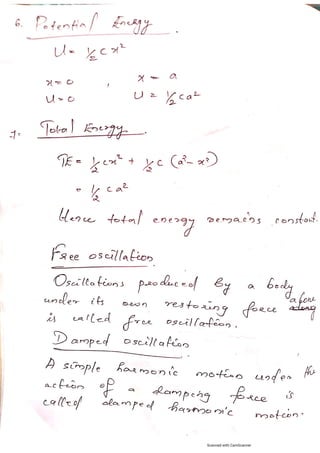 6. Potential Energy
U = 1/2 C x²
x = 0 , x = a
U = 0 U = 1/2 ca²
7. Total Energy
TE = 1/2 cx² + 1/2 c (a² - x²)
= 1/2 ca²
Hence total energy remains constant.
Free oscillation
Oscillations produced By a body
under its own restoring force
is called free oscillation.
Damped oscillation
A simple harmonic motion under the
action of a damping force is
called damped harmonic motion.
Scanned with CamScanner